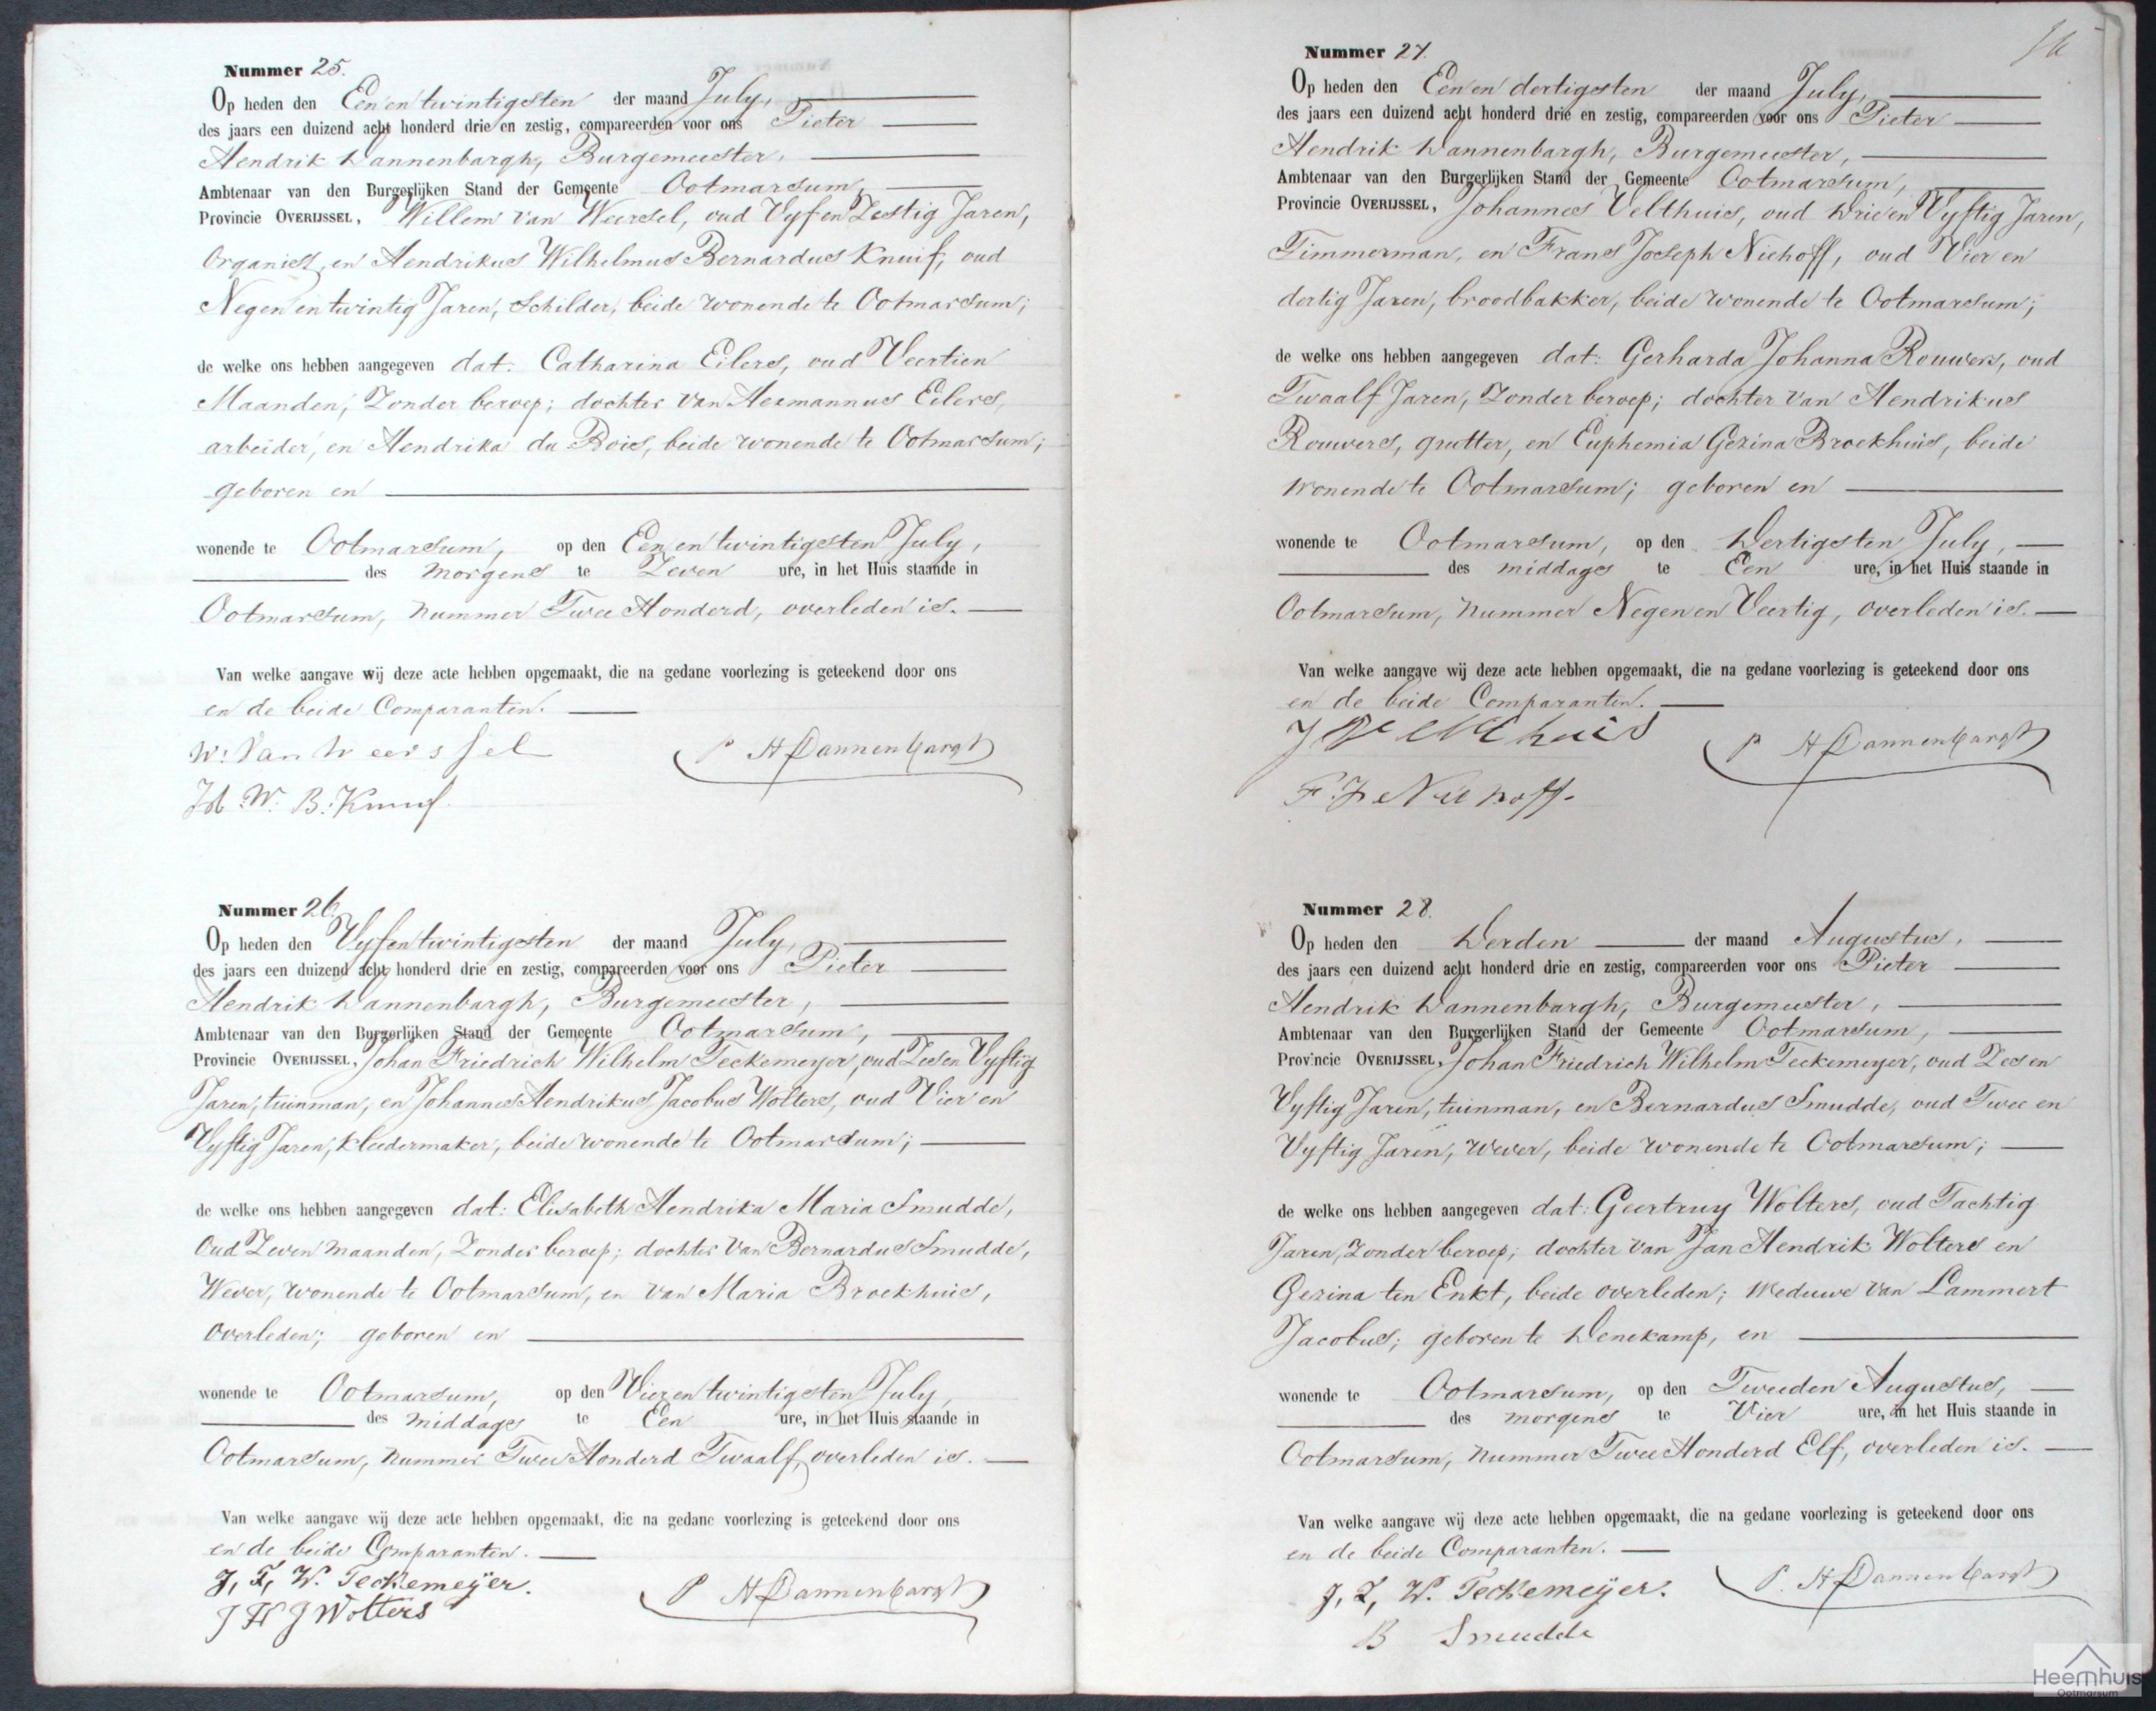 Nummer 25.
Op heden den Een en twintigsten der maand July,
des jaars een duizend acht honderd drie en zestig, compareerden voor ons Pieter
Hendrik Dannenbargh, Burgemeester,
Ambtenaar van den Burgerlijken Stand der Gemeente Ootmarsum,
Provincie OVERIJSSEL, Willem van Weersel, oud Vyf en Zestig Jaren,
Organist, en Hendrikus Wilhelmus Bernardus Knuif, oud
Negen en twintig Jaren, Schilder, beide wonende te Ootmarsum;
de welke ons hebben aangegeven dat: Catharina Eilers, oud Veertien
Maanden, Zonder beroep; dochter van Hermannus Eilers,
arbeider, en Hendrika du Bois, beide wonende te Ootmarsum;
geboren en
wonende te Ootmarsum, op den Een en twintigsten July,
des morgens te Zeven ure, in het Huis staande in
Ootmarsum, nummer Twee Honderd, overleden is.
Van welke aangave wij deze acte hebben opgemaakt, die na gedane voorlezing is geteekend door ons
en de beide Comparanten.
W: Van Weerssel P H Dannenbargh
H. W. B. Knuif
Nummer 26.
Op heden den Vyf en twintigsten der maand July,
des jaars een duizend acht honderd drie en zestig, compareerden voor ons Pieter
Hendrik Dannenbargh, Burgemeester,
Ambtenaar van den Burgerlijken Stand der Gemeente Ootmarsum,
Provincie OVERIJSSEL, Johan Friedrich Wilhelm Teckemeyer, oud Zes en Vyftig
Jaren, tuinman, en Johannes Hendrikus Jacobus Wolters, oud Vier en
Vyftig Jaren, kleedermaker, beide wonende te Ootmarsum;
de welke ons hebben aangegeven dat: Elisabeth Hendrika Maria Smudde,
oud Zeven maanden, Zonder beroep; dochter van Bernardus Smudde,
Wever, wonende te Ootmarsum, en van Maria Broekhuis,
overleden; geboren en
wonende te Ootmarsum, op den Vier en twintigsten July,
des middags te Een ure, in het Huis staande in
Ootmarsum, nummer Twee Honderd Twaalf, overleden is.
Van welke aangave wij deze acte hebben opgemaakt, die na gedane voorlezing is geteekend door ons
en de beide Comparanten.
J, F, W. Teckemeÿer. P H Dannenbargh
J H J Wolters
Nummer 27.
Op heden den Een en dertigsten der maand July,
des jaars een duizend acht honderd drie en zestig, compareerden voor ons Pieter
Hendrik Dannenbargh, Burgemeester,
Ambtenaar van den Burgerlijken Stand der Gemeente Ootmarsum,
Provincie OVERIJSSEL, Johannes Velthuis, oud Drie en Vyftig Jaren,
Timmerman, en Frans Joseph Niehoff, oud Vier en
dertig Jaren, broodbakker, beide wonende te Ootmarsum;
de welke ons hebben aangegeven dat: Gerharda Johanna Rouwers, oud
Twaalf Jaren, Zonder beroep; dochter van Hendrikus
Rouwers, grutter, en Euphemia Gezina Broekhuis, beide
wonende te Ootmarsum; geboren en
wonende te Ootmarsum, op den Dertigsten July,
des middags te Een ure, in het Huis staande in
Ootmarsum, nummer Negen en Veertig, overleden is.
Van welke aangave wij deze acte hebben opgemaakt, die na gedane voorlezing is geteekend door ons
en de beide Comparanten.
J Velthuis P H Dannenbargh
F. J. Niehoff.
Nummer 28.
Op heden den Derden der maand Augustus,
des jaars een duizend acht honderd drie en zestig, compareerden voor ons Pieter
Hendrik Dannenbargh, Burgemeester,
Ambtenaar van den Burgerlijken Stand der Gemeente Ootmarsum,
Provincie OVERIJSSEL, Johan Friedrich Wilhelm Teckemeyer, oud Zes en
Vyftig Jaren, tuinman, en Bernardus Smudde, oud Twee en
Vyftig Jaren, Wever, beide wonende te Ootmarsum;
de welke ons hebben aangegeven dat: Geertruy Wolters, oud Tachtig
Jaren, Zonder beroep; dochter van Jan Hendrik Wolters en
Gezina ten Enkt, beide overleden; Weduwe van Lammert
Jacobus; geboren te Denekamp, en
wonende te Ootmarsum, op den Tweeden Augustus,
des morgens te Vier ure, in het Huis staande in
Ootmarsum, nummer Twee Honderd Elf, overleden is.
Van welke aangave wij deze acte hebben opgemaakt, die na gedane voorlezing is geteekend door ons
en de beide Comparanten.
J, F, W. Teckemeÿer. P. H Dannenbargh
B Smudde
Heemhuis
Ootmarsum